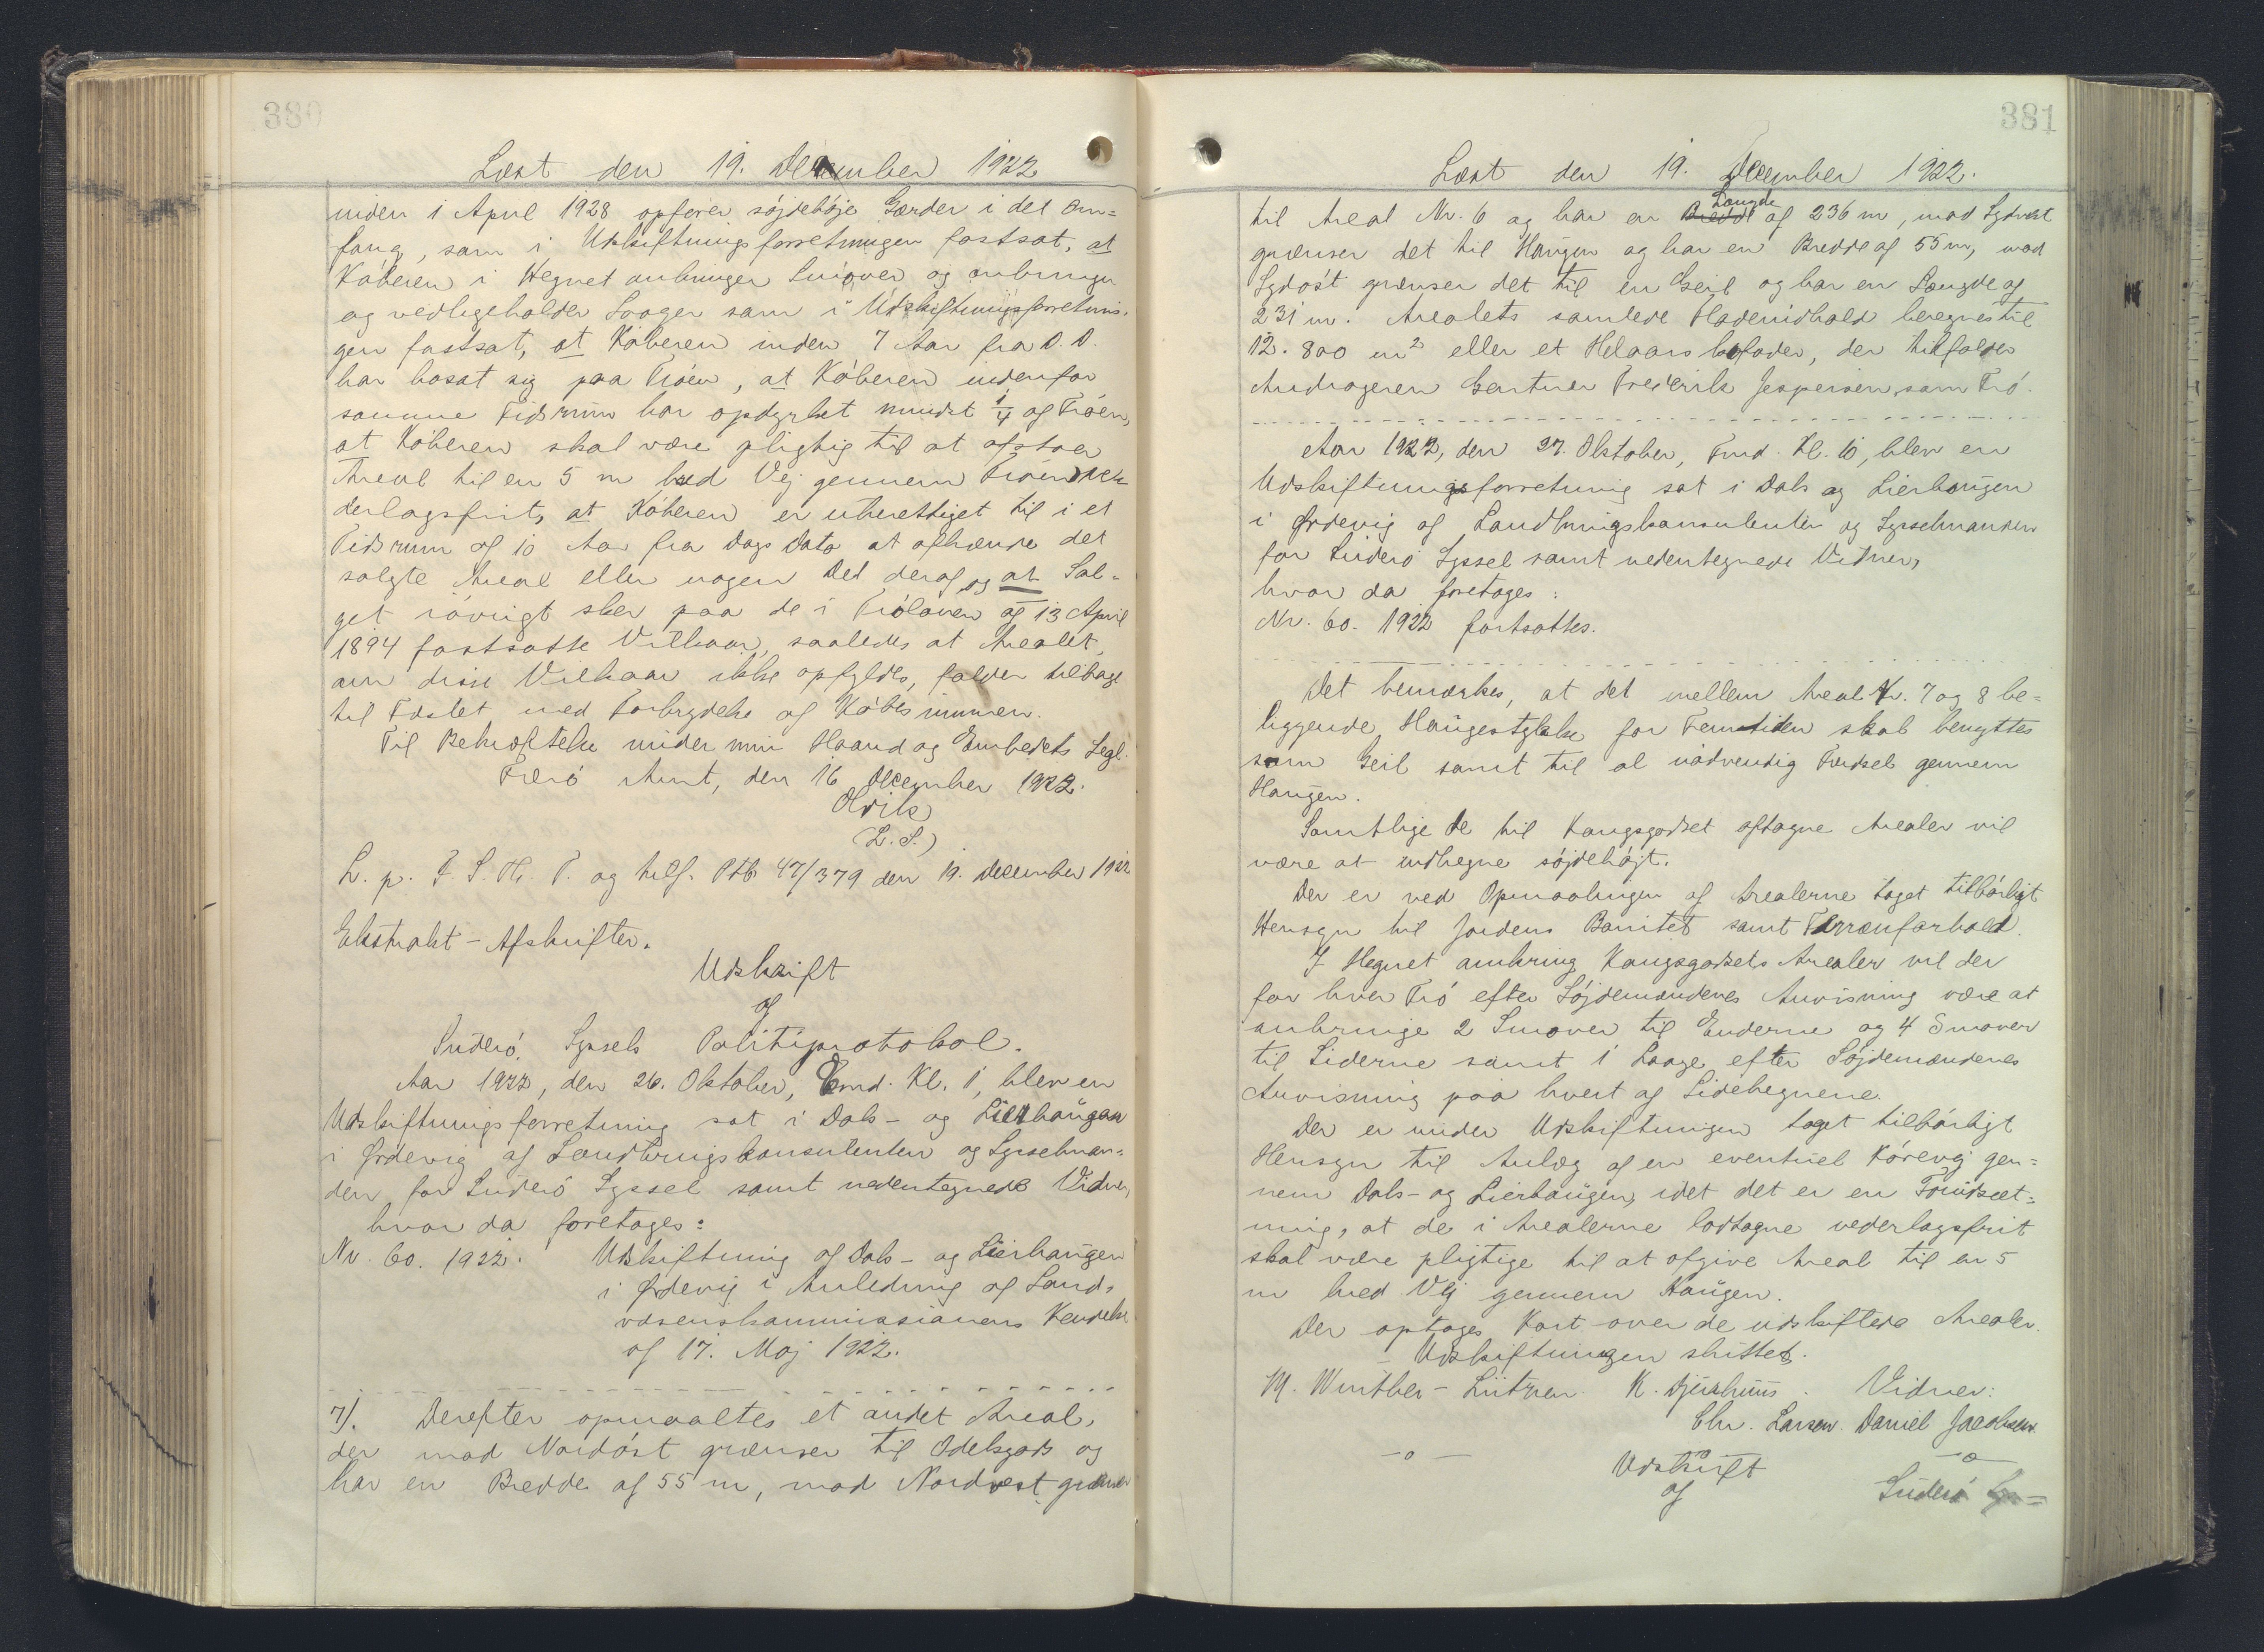 380
Læst den 19. December 1922
inden 1 April 1928 opfører söjdehöje Gærder i det Om=
fang, som i Udskiftningsforretningen fastsat, at
Köberen i Hegnet anbringer Smöver og anbringer
og vedligeholder Laager som i Udskiftningsforretnin-
gen fastsat, at Köberen inden 7 Aar fra D. D.
har bosat sig paa Tröen, at Köberen indenfor
samme Tidsrum har opdyrket mindst 1/4 af Tröen,
at Köberen skal være pligtig til at afstaa
Areal til en 5 m bred Vej gennem Tröen ve-
derlagsfrit, at Köberen er uberettiget til i et
Tidsrum af 10 Aar fra Dags Dato at afhænde det
solgte Areal eller nogen Del deraf, og at Sal=
get iövrigt sker paa de i Trölaven af 13 April
1894 fastsatte Vilkaar, saaledes at Arealet,
om disse Vilkaar ikke opfyldes, falder tilbage
til Fæstet med Forbrydelse af Köbesummen.
Til Bekræftelse under min Haand og Embedets Segl.
Færö Amt, den 16 December 1922.
(L. S.)
L. p. F. S. Th. T. og tilf. Ptb 47/379 den 19. December 1922
Ekstrakt - Afskrifter.
Udskrift
af
Suderö Syssels Politiprotokol.
Aar 1922, den 26. Oktober, Emd. Kl. 1, blev en
Udskiftningsforretning sat i Dals- og Lierhaugen
i Ördevig af Landbrugskonsulenten og Sysselman=
den for Suderö Syssel samt nedentegnede Vidner,
hvor da foretages:
Nr. 60. 1922. Udskiftning af Dals- og Lierhaugen
i Ördevig i Anledning af Land-
væsenskommissionens Kendelse
af 17. Maj 1922.
7). Derefter opmaaltes et andet Areal,
der mod Nordöst grænser til Odelsgods og
har en Bredde af 55 m, mod Nordvest grænser
381
Læst den 19. December 1922.
til Areal Nr. 6 og har en Bredde Længde af 236 m, mod Sydvest
grænser det til Haugen og har en Bredde af 55 m, mod
Sydöst grænser det til en Geil og har en Længde af
231 m. Arealets samlede Fladeindhold beregnes til
12.800 m² eller et Helaars kofoder, der tilfalder
Andrageren Gartner Frederik Jespersen, som Trö.
Aar 1922, den 27. Oktober, Fmd. Kl. 10, blev en
Udskiftningsforretning sat i Dals og Lierhaugen
i Ördevig af Landbrugskonsulenten og Sysselmanden
for Suderö Syssel samt nedentegnede Vidner,
hvor da foretages:
Nr. 60. 1922 fortsattes.
Det bemærkes, at det mellem Areal Nr. 7 og 8 be=
liggende Haugestykke for Femtiden skal benyttes
som Geil samt til al nödvendig Færdsel gennem
Haugen.
Samtlige de til Kongsgodset aftagne Arealer vil
være at indhegne söjdehöjt.
Der er ved Opmaalingen af Arealerne taget tilbörligt
Hensyn til Jordens Bonitet samt Terrænforhold.
I Hegnet omkring Kongsgodsets Arealer vil der
for hver Trö efter Söjdemændenes Anvisning være at
anbringe 2 Smöver til Enderne og 4 Smöver
til Siderne samt 1 Laage efter Söjdemændenes
Anvisning paa hvert af Sidehegnene.
Der er under Udskiftningen taget tilbörligt
Hensyn til Anlæg af en eventuel Körevej gen=
nem Dals- og Lierhaugen, idet det er en Forudsæt=
ning, at de i Arealerne lodtagne vederlagsfrit
skal være pligtige til at afgive Areal til en 5
m bred Vej gennem Haugen.
Der optages Kort over de udskiftede Arealer.
- Udskiftningen sluttet.
M. Winther-Lützen. K. Djurhuus. Vidner:
Chr. Larsen. Daniel Jacobsen.
-o- -o-
Udskrift
af Suderö Sy=